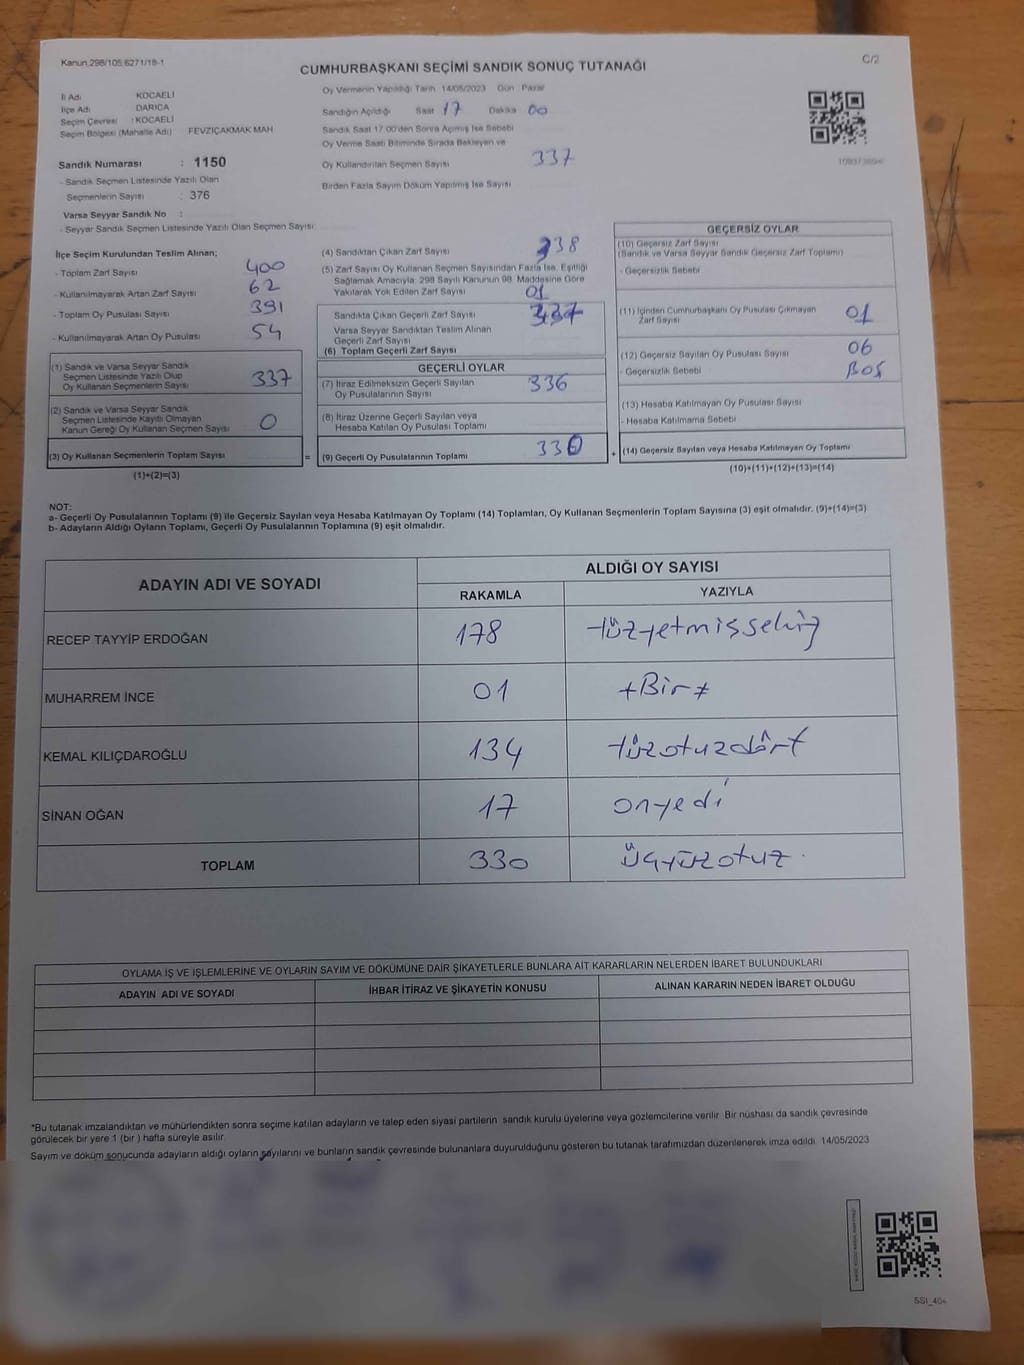 Kanun 298/105,6271/18-1
C/2
CUMHURBAŞKANI SEÇİMİ SANDIK SONUÇ TUTANAĞI
İl Adı KOCAELİ
İlçe Adı DARICA
Seçim Çevresi : KOCAELİ
Seçim Bölgesi (Mahalle Adı) FEVZİÇAKMAK MAH
Sandık Numarası : 1150
- Sandık Seçmen Listesinde Yazılı Olan
Seçmenlerin Sayısı : 376
Varsa Seyyar Sandık No :
- Seyyar Sandık Seçmen Listesinde Yazılı Olan Seçmen Sayısı:
Oy Vermenin Yapıldığı Tarih 14/05/2023 Gün : Pazar
Sandığın Açıldığı Saat 17 Dakika 00
Sandık Saat 17.00'den Sonra Açılmış İse Sebebi
Oy Verme Saati Bitiminde Sırada Bekleyen ve
Oy Kullandırılan Seçmen Sayısı 337
Birden Fazla Sayım Döküm Yapılmış İse Sayısı
İlçe Seçim Kurulundan Teslim Alınan;
- Toplam Zarf Sayısı 400
- Kullanılmayarak Artan Zarf Sayısı 62
- Toplam Oy Pusulası Sayısı 391
- Kullanılmayarak Artan Oy Pusulası 54
(1) Sandık ve Varsa Seyyar Sandık
Seçmen Listesinde Yazılı Olup
Oy Kullanan Seçmenlerin Sayısı 337
(2) Sandık ve Varsa Seyyar Sandık
Seçmen Listesinde Kayıtlı Olmayan
Kanun Gereği Oy Kullanan Seçmen Sayısı 0
(3) Oy Kullanan Seçmenlerin Toplam Sayısı
(1)+(2)=(3)
(4) Sandıktan Çıkan Zarf Sayısı 338
(5) Zarf Sayısı Oy Kullanan Seçmen Sayısından Fazla İse, Eşitliği
Sağlamak Amacıyla, 298 Sayılı Kanunun 98. Maddesine Göre
Yakılarak Yok Edilen Zarf Sayısı 01
Sandıkta Çıkan Geçerli Zarf Sayısı 337
Varsa Seyyar Sandıktan Teslim Alınan
Geçerli Zarf Sayısı
(6) Toplam Geçerli Zarf Sayısı
GEÇERLİ OYLAR
(7) İtiraz Edilmeksizin Geçerli Sayılan
Oy Pusulalarının Sayısı 336
(8) İtiraz Üzerine Geçerli Sayılan veya
Hesaba Katılan Oy Pusulası Toplamı
= (9) Geçerli Oy Pusulalarının Toplamı 330 +
GEÇERSİZ OYLAR
(10) Geçersiz Zarf Sayısı
(Sandık ve Varsa Seyyar Sandık Geçersiz Zarf Toplamı)
- Geçersizlik Sebebi
(11) İçinden Cumhurbaşkanı Oy Pusulası Çıkmayan
Zarf Sayısı 01
(12) Geçersiz Sayılan Oy Pusulası Sayısı 06
- Geçersizlik Sebebi BOŞ
(13) Hesaba Katılmayan Oy Pusulası Sayısı
- Hesaba Katılmama Sebebi
(14) Geçersiz Sayılan veya Hesaba Katılmayan Oy Toplamı
(10)+(11)+(12)+(13)=(14)
NOT:
a- Geçerli Oy Pusulalarının Toplamı (9) ile Geçersiz Sayılan veya Hesaba Katılmayan Oy Toplamı (14) Toplamları, Oy Kullanan Seçmenlerin Toplam Sayısına (3) eşit olmalıdır. (9)+(14)=(3)
b- Adayların Aldığı Oyların Toplamı, Geçerli Oy Pusulalarının Toplamına (9) eşit olmalıdır.
ADAYIN ADI VE SOYADI ALDIĞI OY SAYISI
RAKAMLA YAZIYLA
RECEP TAYYİP ERDOĞAN 178 yüzyetmişsekiz
MUHARREM İNCE 01 +Bir≠
KEMAL KILIÇDAROĞLU 134 yüzotuzdört
SİNAN OĞAN 17 onyedi
TOPLAM 330 üçyüzotuz.
OYLAMA İŞ VE İŞLEMLERİNE VE OYLARIN SAYIM VE DÖKÜMÜNE DAİR ŞİKAYETLERLE BUNLARA AİT KARARLARIN NELERDEN İBARET BULUNDUKLARI
ADAYIN ADI VE SOYADI İHBAR İTİRAZ VE ŞİKAYETİN KONUSU ALINAN KARARIN NEDEN İBARET OLDUĞU
*Bu tutanak imzalandıktan ve mühürlendikten sonra seçime katılan adayların ve talep eden siyasi partilerin sandık kurulu üyelerine veya gözlemcilerine verilir. Bir nüshası da sandık çevresinde
görülecek bir yere 1 (bir ) hafta süreyle asılır.
Sayım ve döküm sonucunda adayların aldığı oyların sayılarını ve bunların sandık çevresinde bulunanlara duyurulduğunu gösteren bu tutanak tarafımızdan düzenlenerek imza edildi. 14/05/2023